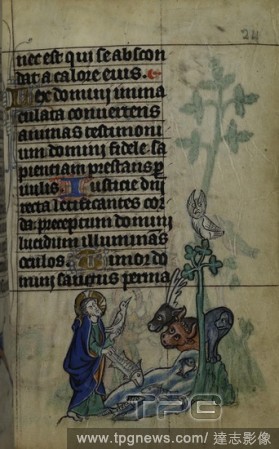 24
nec est qui se abscon
dat a calore eius.
Lex domini inma
culata convertens
animas testimoni
um domini fidele sa
pientiam prestans p
vulis. Iusticie dni
recta letificantes cor
da preceptum domini
lucidum illuminans
oculos. Timor do
mini sanctus perma
TPG
www.tpgnews.com/達志影像